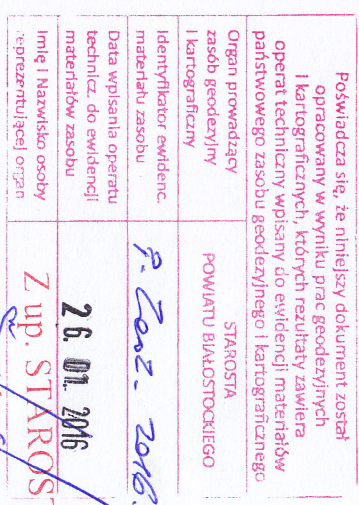 Poświadcza się, że niniejszy dokument został
opracowany w wyniku prac geodezyjnych
i kartograficznych, których rezultaty zawiera
operat techniczny wpisany do ewidencji materiałów
państwowego zasobu geodezyjnego i kartograficznego
Organ prowadzący
zasób geodezyjny
i kartograficzny
STAROSTA
POWIATU BIAŁOSTOCKIEGO
Identyfikator ewidenc.
materiału zasobu
2016.
Data wpisania operatu
technicz. do ewidencji
materiałów zasobu
26. 01. 2016
Imię i Nazwisko osoby
reprezentującej organ
Z up. STAROS